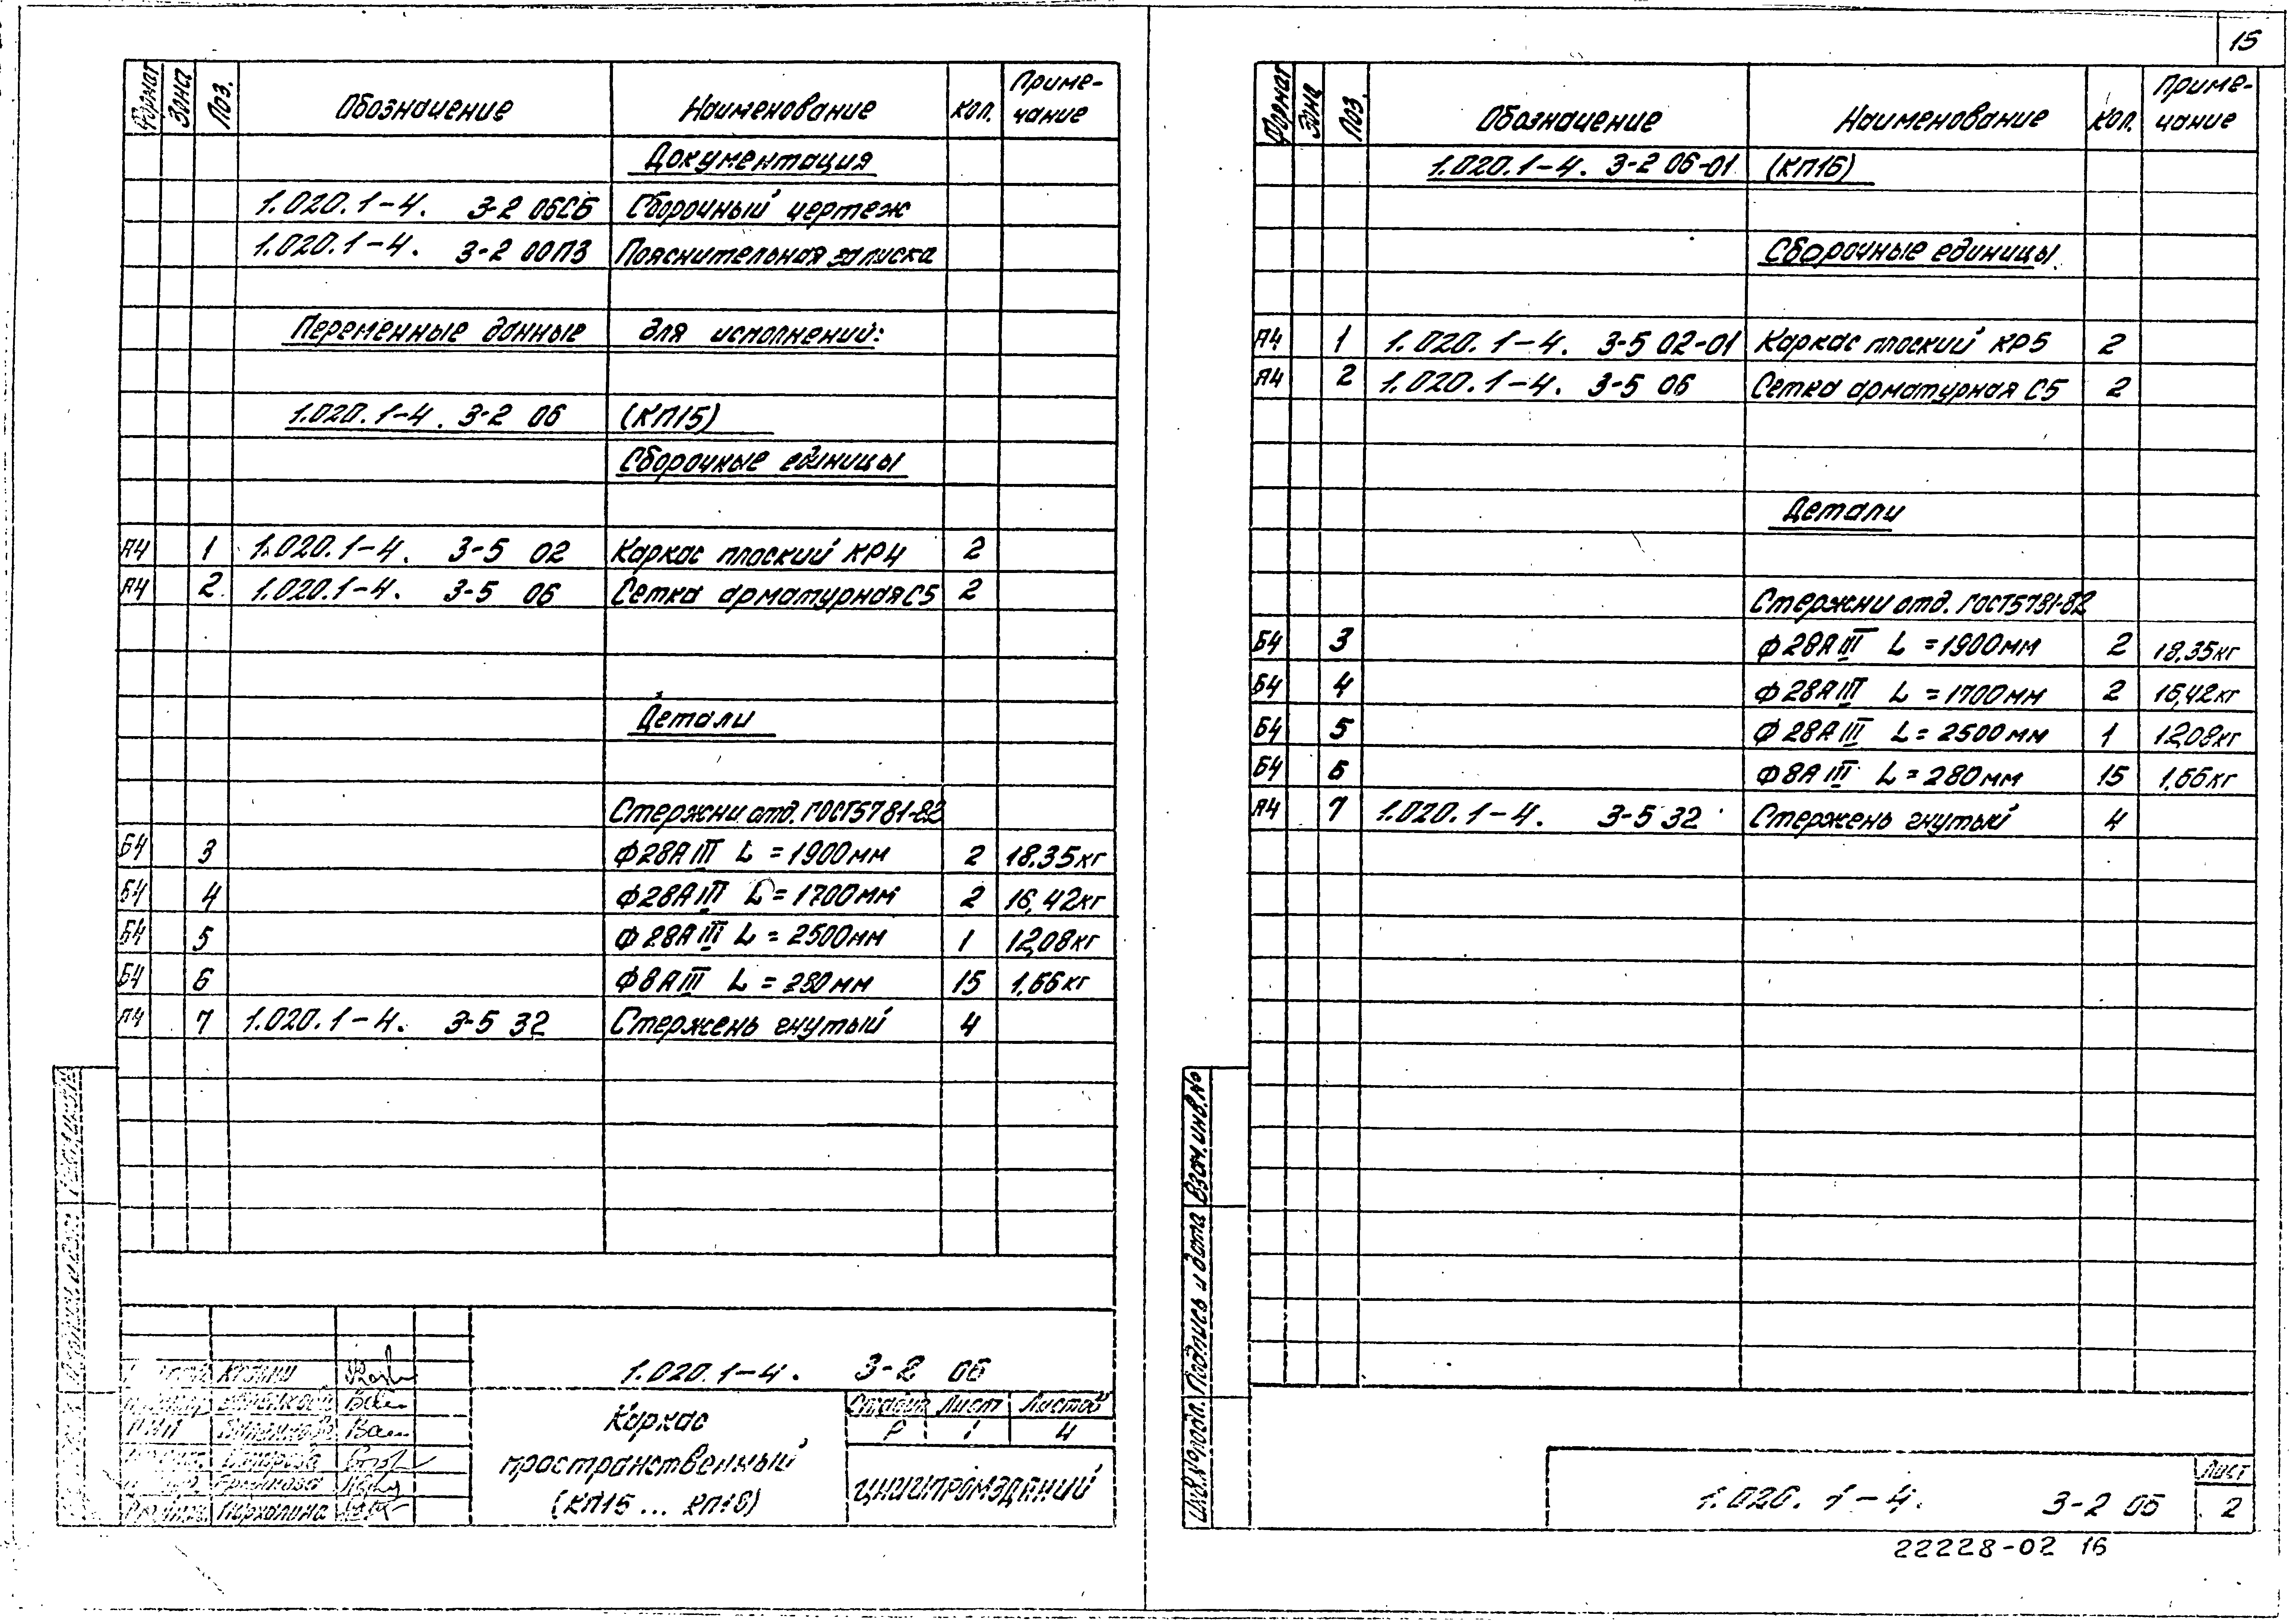 15
Формат Зона Поз. Обозначение Наименование Кол. Приме-чание
Документация
1.020.1-4. 3-2 06СБ Сборочный чертеж
1.020.1-4. 3-2 00ПЗ Пояснительная записка
Переменные данные для исполнений:
1.020.1-4. 3-2 06 (КП15)
Сборочные единицы
А4 1 1.020.1-4. 3-5 02 Каркас плоский КР4 2
А4 2 1.020.1-4. 3-5 06 Сетка арматурная С5 2
Детали
Стержни отд. ГОСТ5781-82
Б4 3 ф28АIII L=1900мм 2 18.35кг
Б4 4 ф28АIII L=1700мм 2 16,42кг
Б4 5 ф28АIII L=2500мм 1 12,08кг
Б4 6 ф8АIII L=280мм 15 1,66кг
А4 7 1.020.1-4. 3-5 32 Стержень гнутый 4
1.020.1-4. 3-2 06
Каркас
пространственный
(КП15 ... КП18)
Стадия Лист Листов
Р 1 4
ЦНИИПРОМЗДАНИЙ
Формат Зона Поз. Обозначение Наименование Кол. Приме-чание
1.020.1-4. 3-2 06-01 (КП16)
Сборочные единицы
А4 1 1.020.1-4. 3-5 02-01 Каркас плоский КР5 2
А4 2 1.020.1-4. 3-5 06 Сетка арматурная С5 2
Детали
Стержни отд. ГОСТ5781-82
Б4 3 ф28АIII L=1900мм 2 18,35кг
Б4 4 ф28АIII L=1700мм 2 16,42кг
Б4 5 ф28АIII L=2500мм 1 12,08кг
Б4 6 ф8АIII L=280мм 15 1,66кг
А4 7 1.020.1-4. 3-5 32 Стержень гнутый 4
Инв.№подл. Подпись и дата Взам.инв.№
1.020.1-4. 3-2 06
Лист
2
22228-02 16